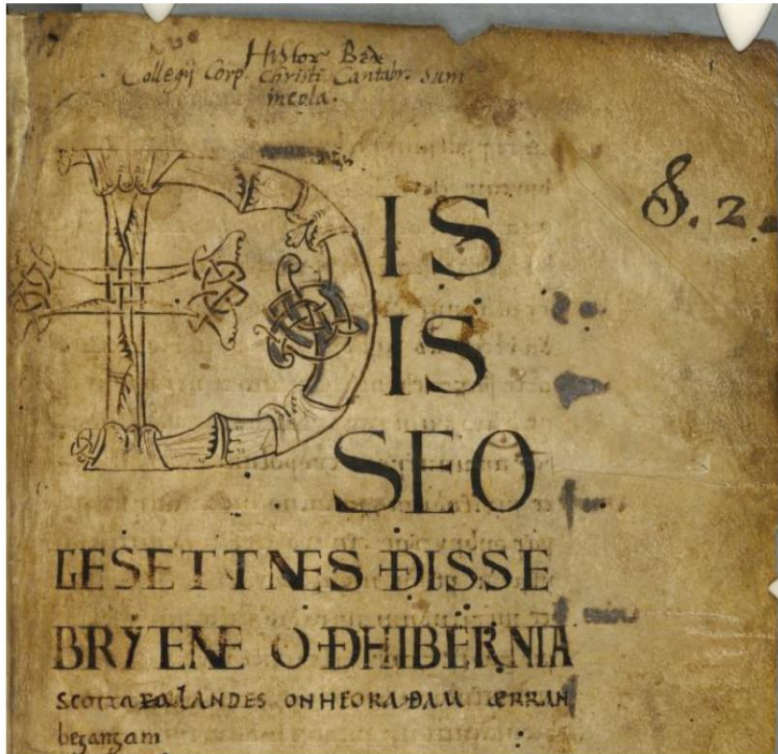 Histor Bede
Collegij Corp. Christi Cantabr. sum
incola.
S. 2.
ÐIS
IS
SEO
GESETTNES ÐISSE
BRYTENE OÐÐHIBERNIA
scotta ealANDES ON HEORA ÐAM ÆRRAN
begangam